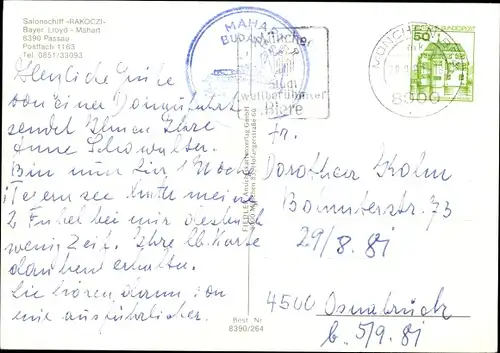 Salonschiff »RAKOCZI«
Bayer. Lloyd - Mahart
8390 Passau
Postfach 1163
Tel. 0851/33093
MAHART
BUDAPEST
Münchner
Stadt
weltberühmter
Biere
MÜNCHEN
8000
50
DEUTSCHE BUNDESPOST
Herzliche Grüße
von einer Donaufahrt
sendet Ihnen Ihre
Anne Schowalter.
Bin nun hier 1 Woche
Tegernsee hatte meine
2 Enkel bei mir deshalb
wenig Zeit. Ihre lb. Karte
dankend erhalten.
Sie hören dann von
mir ausführlicher.
Best. Nr.
8390/264
Fr.
Dorothea Kolm
Bohmterstr. 73
29/8.81
4500 Osnabrück
b. 5/9.81